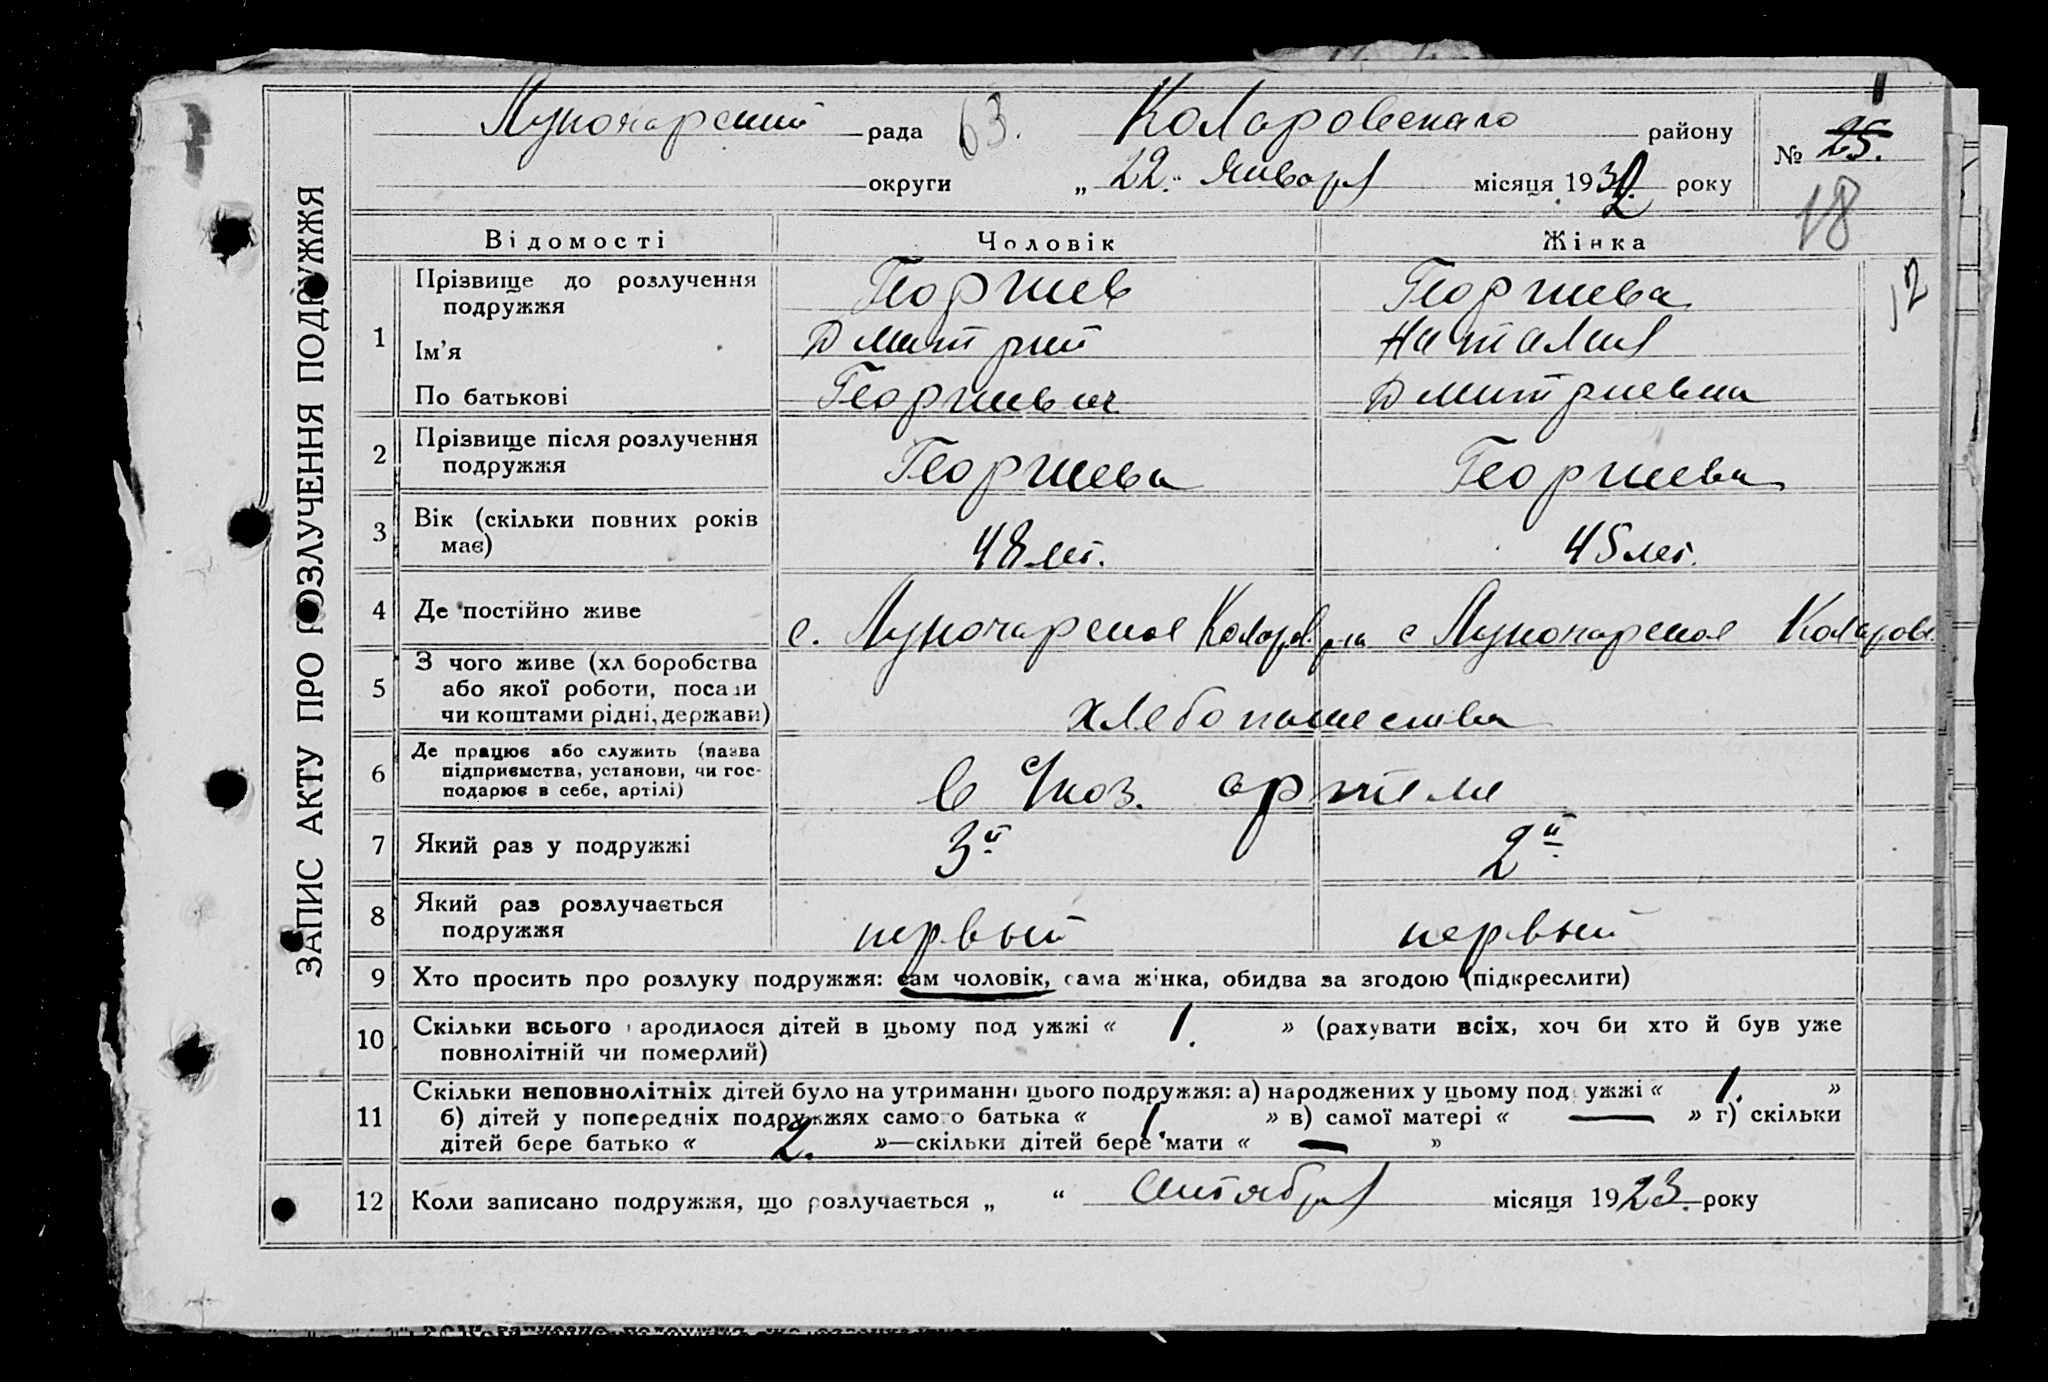 Луночарский рада 63. Коларовскаго районy № 25. 1
округи „ 22." Января місяця 1932 року
18
ЗАПИС АКТУ ПРО РОЗЛУЧЕННЯ ПОДРУЖЖЯ
Відомості Чоловік Жінка
12
1 Прізвище до розлучення Георгиев Георгиева
подружжя
Ім'я Дмитрий Наталия
По батькові Георгиевич Дмитриевна
2 Прізвище після розлучення Георгиева Георгиева
подружжя
3 Вік (скільки повних років 48 лет. 45 лет.
має)
4 Де постійно живе с. Луночарское Коларов. р-на с Луночарское Коларовс.
5 З чого живе (хл.боробства
або якої роботи, посади хлебопашества
чи коштами рідні, держави)
6 Де працює або служить (назва
підприємства, установи, чи гос- в с/хоз. артели
подарює в себе, артілі)
7 Який раз у подружжі 3й 2й
8 Який раз розлучається первый первый
подружжя
9 Хто просить про розлуку подружжя: сам чоловік, сама жінка, обидва за згодою (підкреслити)
10 Скільки всього народилося дітей в цьому подружжі « 1. » (рахувати всіх, хоч би хто й був уже
повнолітній чи померлий)
11 Скільки неповнолітніх дітей було на утриманні цього подружжя: а) народжених у цьому подружжі « 1. »
б) дітей у попередніх подружжях самого батька « 1. » в) самої матері « — » г) скільки
дітей бере батько « 2. »—скільки дітей бере мати « — »
12 Коли записано подружжя, що розлучається „ “ Сентября місяця 1923. року